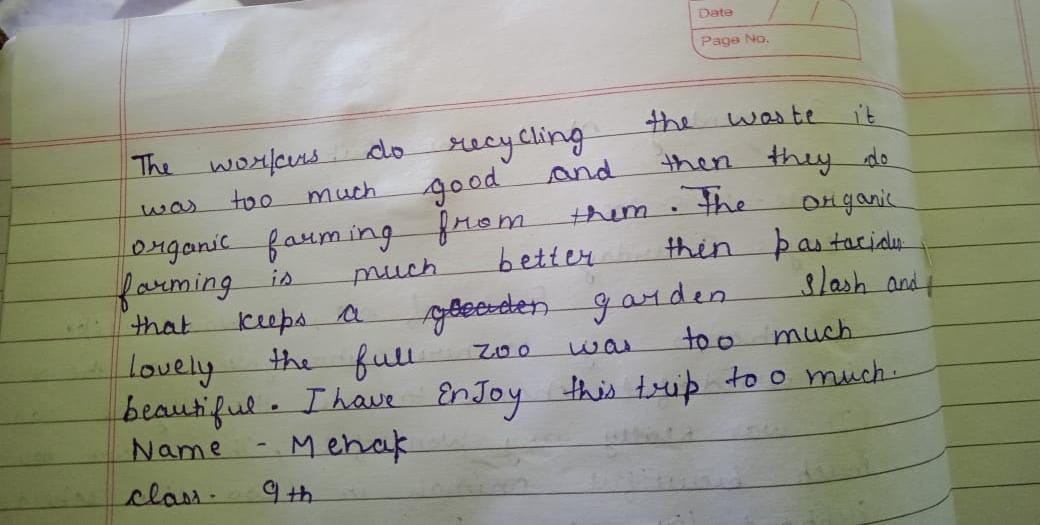 Date / /
Page No.
The workers do recycling the waste it
was too much good and then they do
organic farming from them. The organic
farming is much better then pastacides
that keeps a garden slash and
lovely the full zoo was too much
beautiful. I have Enjoy this trip too much.
Name - Mehak
class. 9th